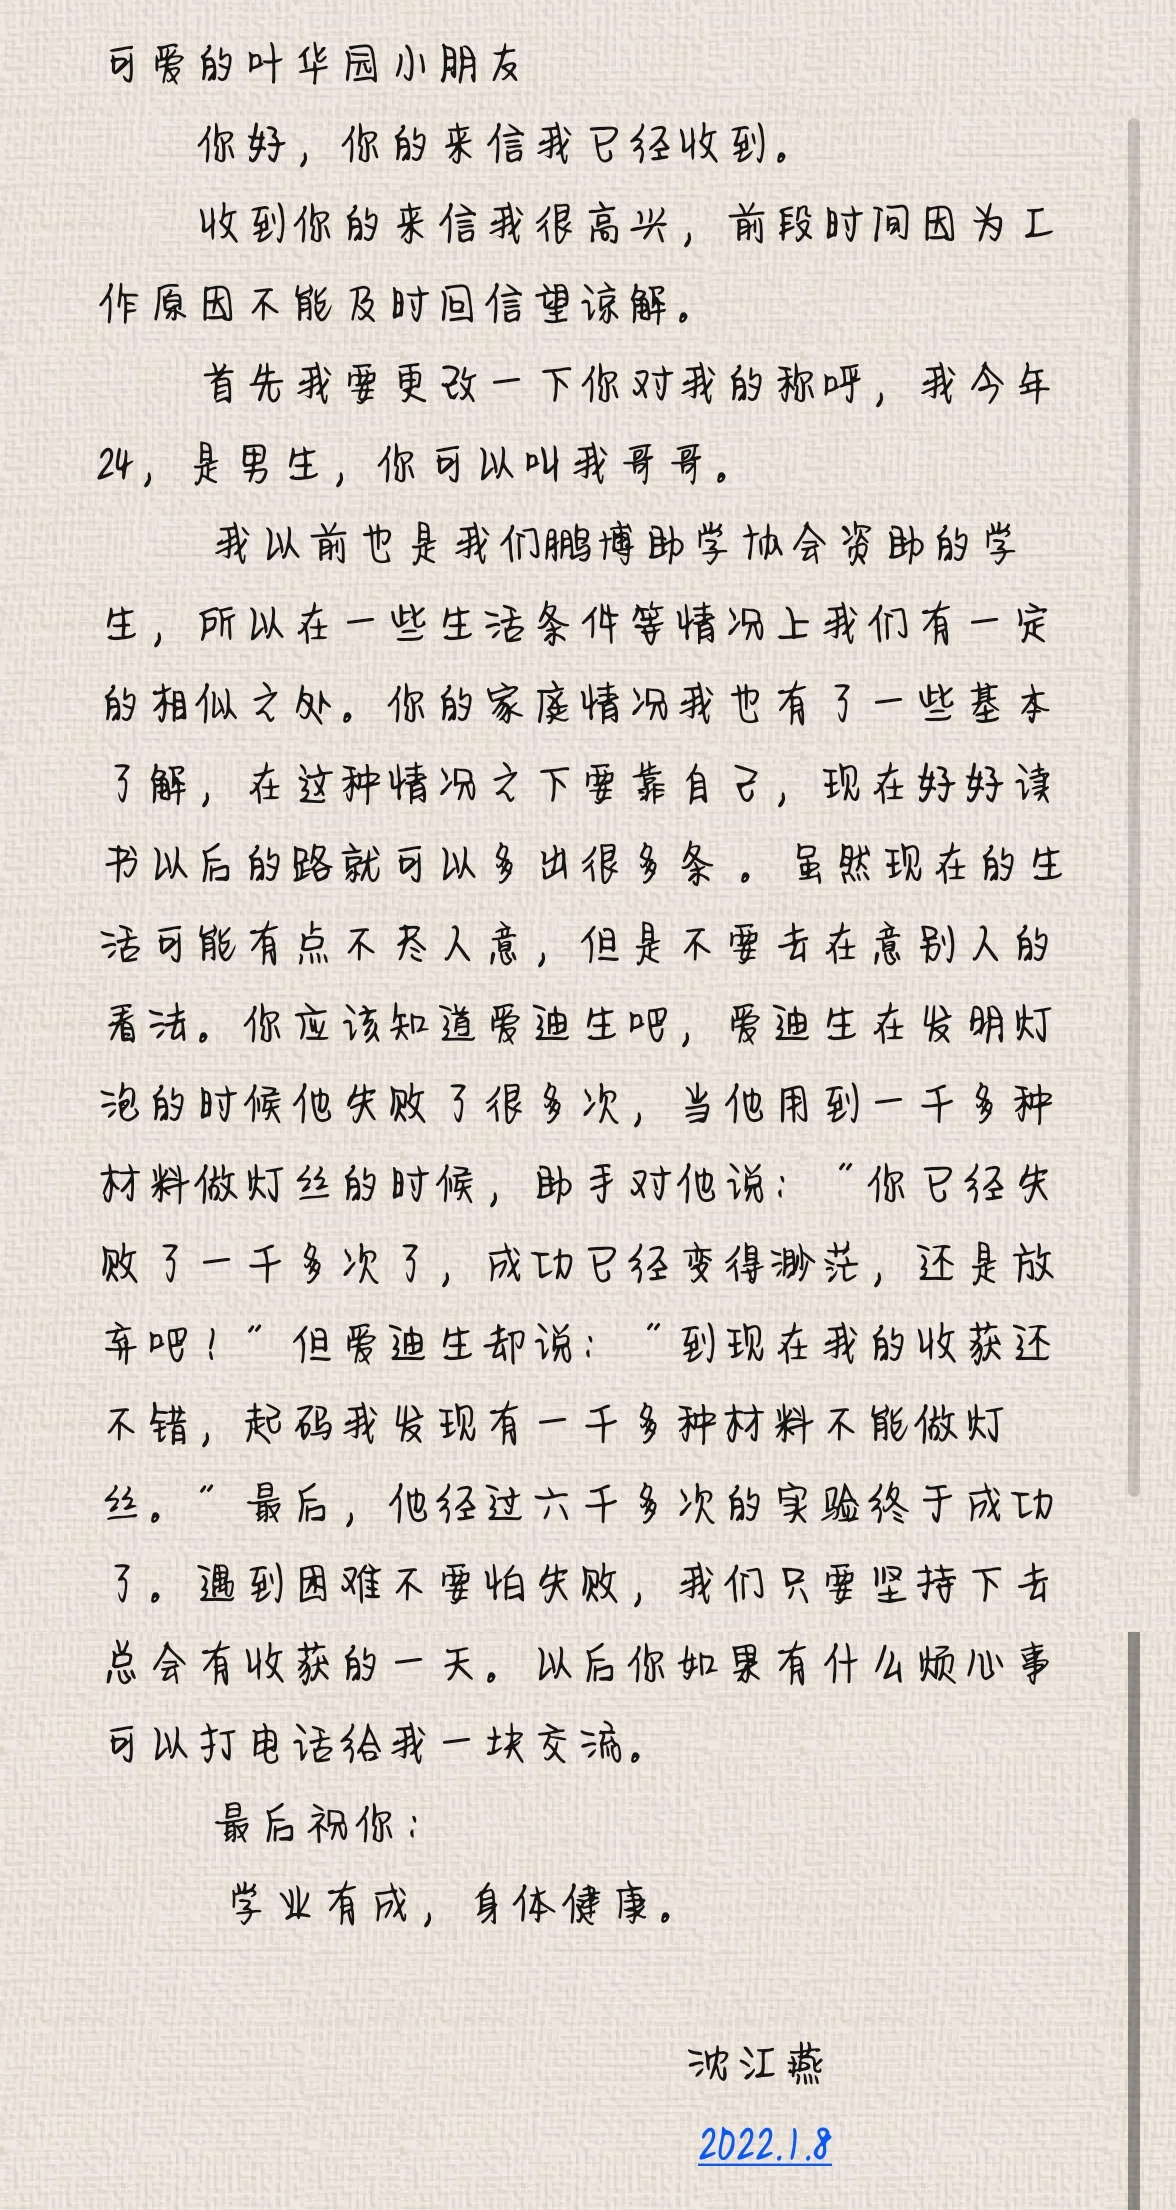 可爱的叶华园小朋友
你好，你的来信我已经收到。
收到你的来信我很高兴，前段时间因为工
作原因不能及时回信望谅解。
首先我要更改一下你对我的称呼，我今年
24，是男生，你可以叫我哥哥。
我以前也是我们鹏博助学协会资助的学
生，所以在一些生活条件等情况上我们有一定
的相似之处。你的家庭情况我也有了一些基本
了解，在这种情况之下要靠自己，现在好好读
书以后的路就可以多出很多条。虽然现在的生
活可能有点不尽人意，但是不要去在意别人的
看法。你应该知道爱迪生吧，爱迪生在发明灯
泡的时候他失败了很多次，当他用到一千多种
材料做灯丝的时候，助手对他说：“你已经失
败了一千多次了，成功已经变得渺茫，还是放
弃吧！”但爱迪生却说：“到现在我的收获还
不错，起码我发现有一千多种材料不能做灯
丝。”最后，他经过六千多次的实验终于成功
了。遇到困难不要怕失败，我们只要坚持下去
总会有收获的一天。以后你如果有什么烦心事
可以打电话给我一块交流。
最后祝你：
学业有成，身体健康。
沈江燕
2022.1.8